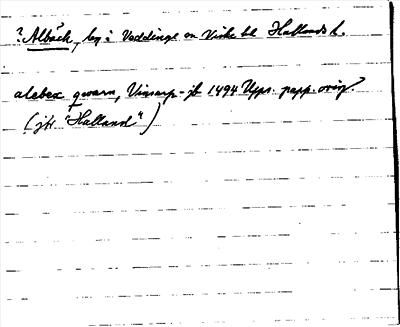 ? Albäck, by i Veddinge sn Viske hd Hallands l.
alebex qwarn, Vinsarp-jb 1494 Upps. papp. orig.
(jfr "Halland")